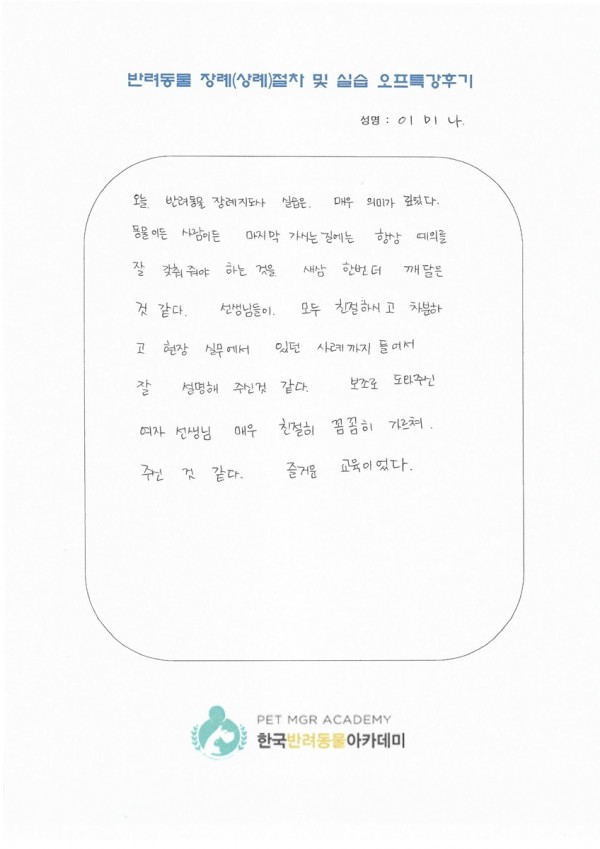 반려동물 장례(상례)절차 및 실습 오프특강후기
성명 : 이 미 나.
오늘 반려동물 장례지도사 실습은. 매우 의미가 깊었다.
동물이든 사람이든 마지막 가시는 길에는 항상 예의를
잘 갖춰 줘야 하는 것을 새삼 한번 더 깨달은
것 같다. 선생님들이. 모두 친절하시고 차분하
고 현장 실무에서 있던 사례까지 들어서
잘 설명해 주신것 같다. 보조로 도와주신
여자 선생님 매우 친절히 꼼꼼히 가르쳐.
주신 것 같다. 즐거운 교육이었다.
PET MGR ACADEMY
한국반려동물아카데미